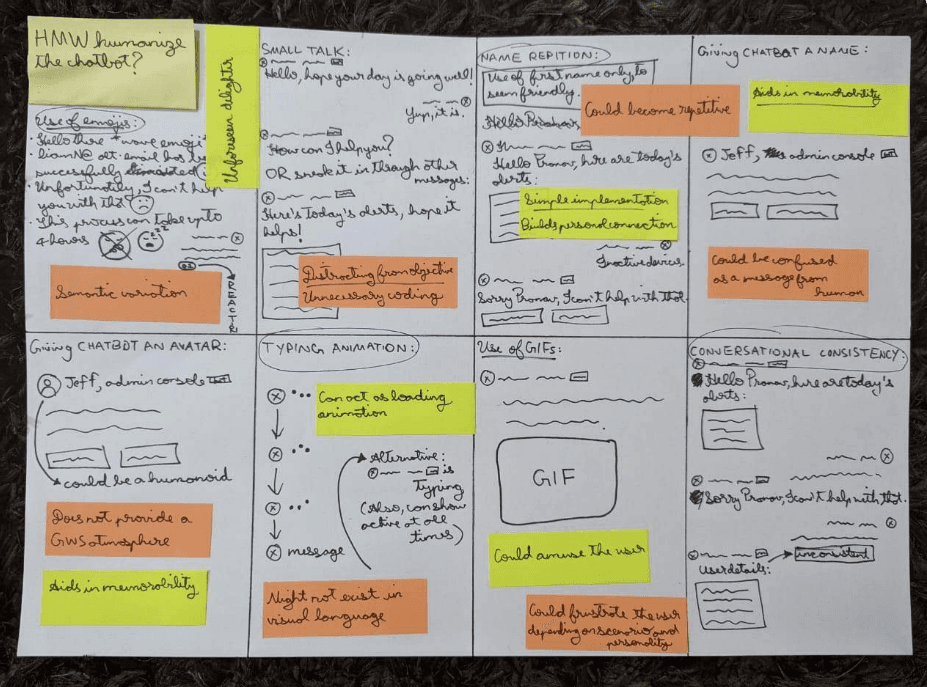 HMW humanize
the chatbot?
Unforeseen delighter
Use of emojis:
Hello there *wave emoji
successfully
Unfortunatily, I can't help
you with that
This process can take upto
4 hours
zzz
REACTR
Semantic variation
SMALL TALK:
Hello, hope your day is going well!
Yup, it is.
How can I help you?
OR sneak it in through other
messages:
Here's today's alerts, hope it
helps!
Distracting from objective
Unnecessary coding
NAME REPITION:
Use of first name only, to
seem friendly.
Could become repetitive
Hello Pranav,
Hello Pranav, here are today's
alerts:
Simple implementation
Builds personal connection
Inactive devices
Sorry Pranav, I can't help with that.
Giving CHATBOT A NAME:
Aids in memorobility
Jeff, admin console BOT
Could be confused
as a message from
human
Giving CHATBOT AN AVATAR:
Jeff, admin console BOT
could be a humanoid
Does not provide a
GWS atmosphere
Aids in memorability
TYPING ANIMATION:
Can act as loading
animation
Alternative:
is
Typing
(Also, can show
active at all
times)
message
Might not exist in
visual language
Use of GIFs:
GIF
Could amuse the user
Could frustrate the user
depending on scenario and
personality
CONVERSATIONAL CONSISTENCY:
Hello Pranav, here are today's
alerts:
Sorry Pranav, I can't help with that.
inconsistent
User details: